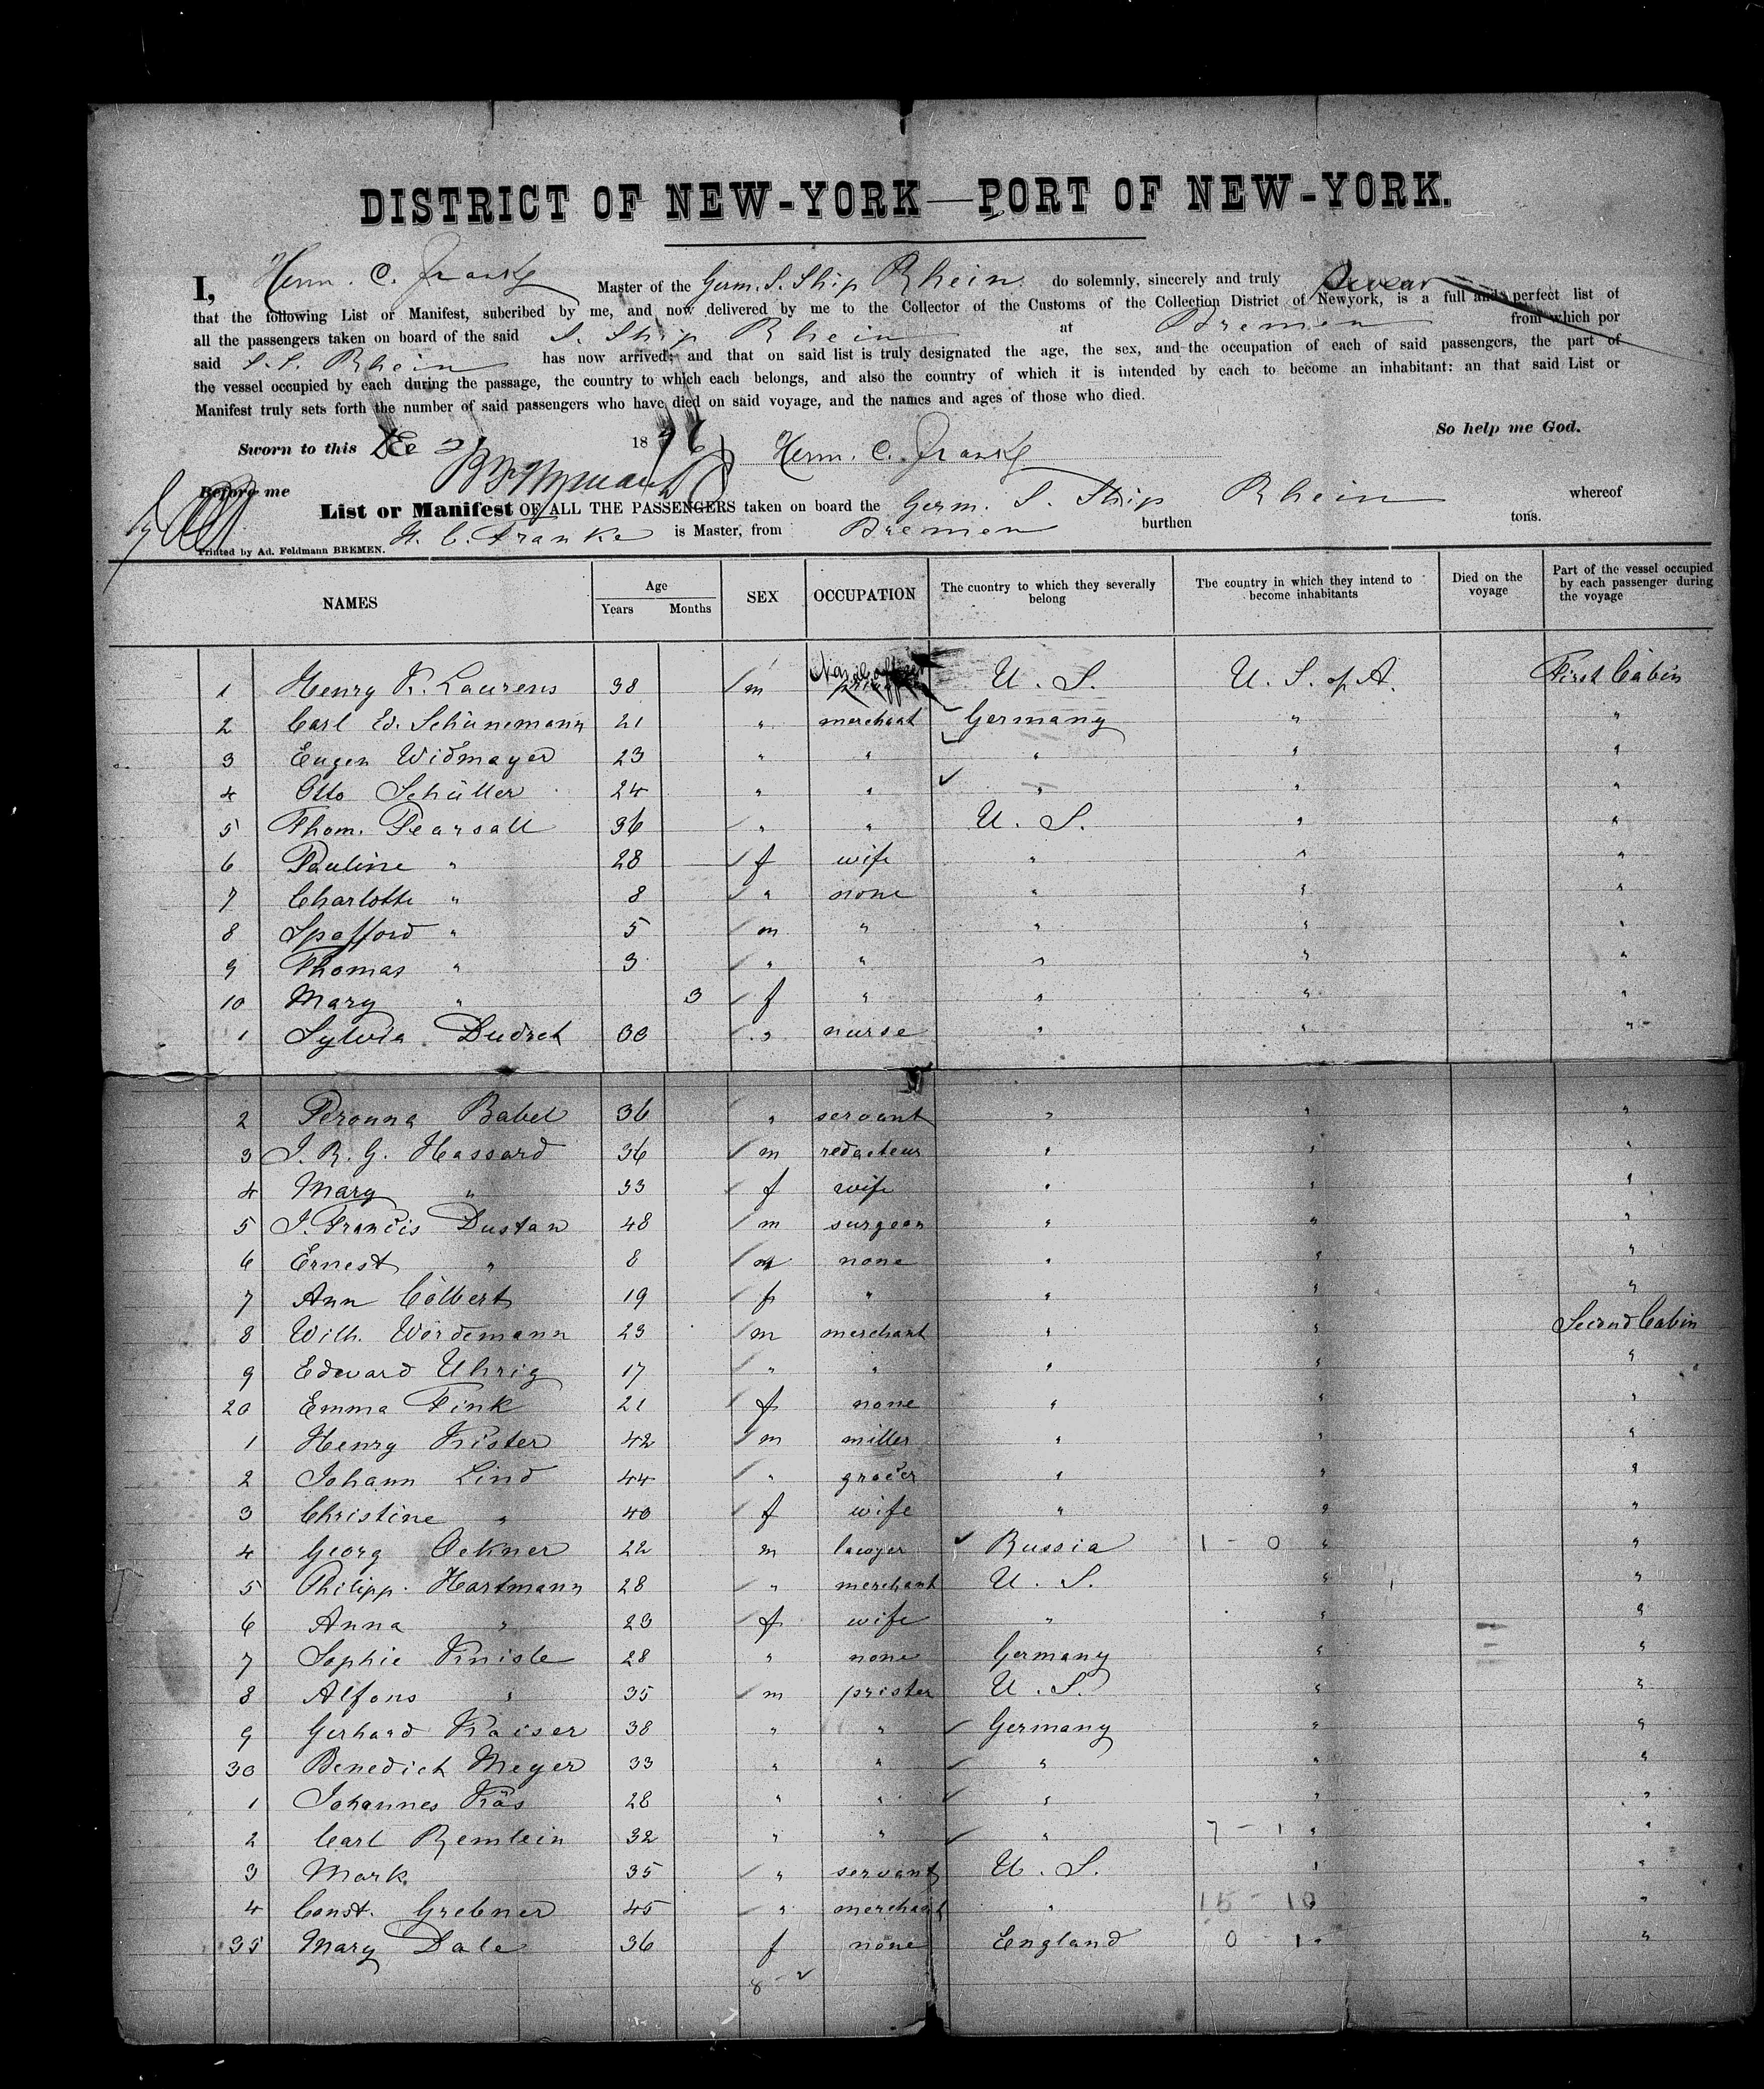 DISTRICT OF NEW-YORK—PORT OF NEW-YORK.
I, Herm. C. Franke Master of the Germ. S. Ship Rhein do solemnly, sincerely and truly swear
that the following List or Manifest, subcribed by me, and now delivered by me to the Collector of the Customs of the Collection District of Newyork, is a full and perfect list of
all the passengers taken on board of the said S. Ship Rhein at Bremen from which por
said S. S. Rhein has now arrived; and that on said list is truly designated the age, the sex, and the occupation of each of said passengers, the part of
the vessel occupied by each during the passage, the country to which each belongs, and also the country of which it is intended by each to become an inhabitant: an that said List or
Manifest truly sets forth the number of said passengers who have died on said voyage, and the names and ages of those who died.
So help me God.
Sworn to this Dec 18 76 Herm. C. Franke
Before me
List or Manifest OF ALL THE PASSENGERS taken on board the Germ. S. Ship Rhein whereof
H. C. Franke is Master, from Bremen burthen tons.
Printed by Ad. Feldmann BREMEN.
NAMES Age Years Months SEX OCCUPATION The cuontry to which they severally belong The country in which they intend to become inhabitants Died on the voyage Part of the vessel occupied by each passenger during the voyage
1 Henry K. Laurens 38 m Naval officer U. S. U. S. of A. First Cabin
2 Carl Ed. Schünemann 21 " merchant Germany " "
3 Eugen Widmayer 23 " " " " "
4 Otto Schüller 24 " " " " "
5 Thom. Pearsall 36 " " U. S. " "
6 Pauline " 28 f wife " " "
7 Charlotte " 8 " none " " "
8 Spafford " 5 m " " " "
9 Thomas " 3 " " " " "
10 Mary " 3 f " " " "
1 Sylvia Dudret 30 " nurse " " "
2 Peronna Babel 36 " servant " " "
3 J. R. G. Hassard 36 m redacteur " " "
4 Mary " 33 f wife " " "
5 J. Francis Dustan 48 m surgeon " " "
6 Ernest " 8 m none " " "
7 Ann Colbert 19 f " " " "
8 Wilh. Wördemann 23 m merchant " " Second Cabin
9 Edward Uhrig 17 " " " " "
20 Emma Fink 21 f none " " "
1 Henry Kister 42 m miller " " "
2 Johann Lind 44 " grocer " " "
3 Christine " 40 f wife " " "
4 Georg Oekner 22 m lawyer Russia 1 - 0 " "
5 Philipp Hartmann 28 " merchant U. S. " "
6 Anna " 23 f wife " " "
7 Sophie Knisle 28 " none Germany " "
8 Alfons " 35 m prister U. S. " "
9 Gerhard Kaiser 38 " " Germany " "
30 Benedich Meyer 33 " " " " "
1 Johannes Käs 28 " " " " "
2 Carl Remlein 32 " " " 7 - 1 " "
3 Mark 35 " servant U. S. " "
4 Const. Grebner 45 " merchant " 15 - 10 "
35 Mary Dale 36 f none England 0 - 1 " "
8 - 2